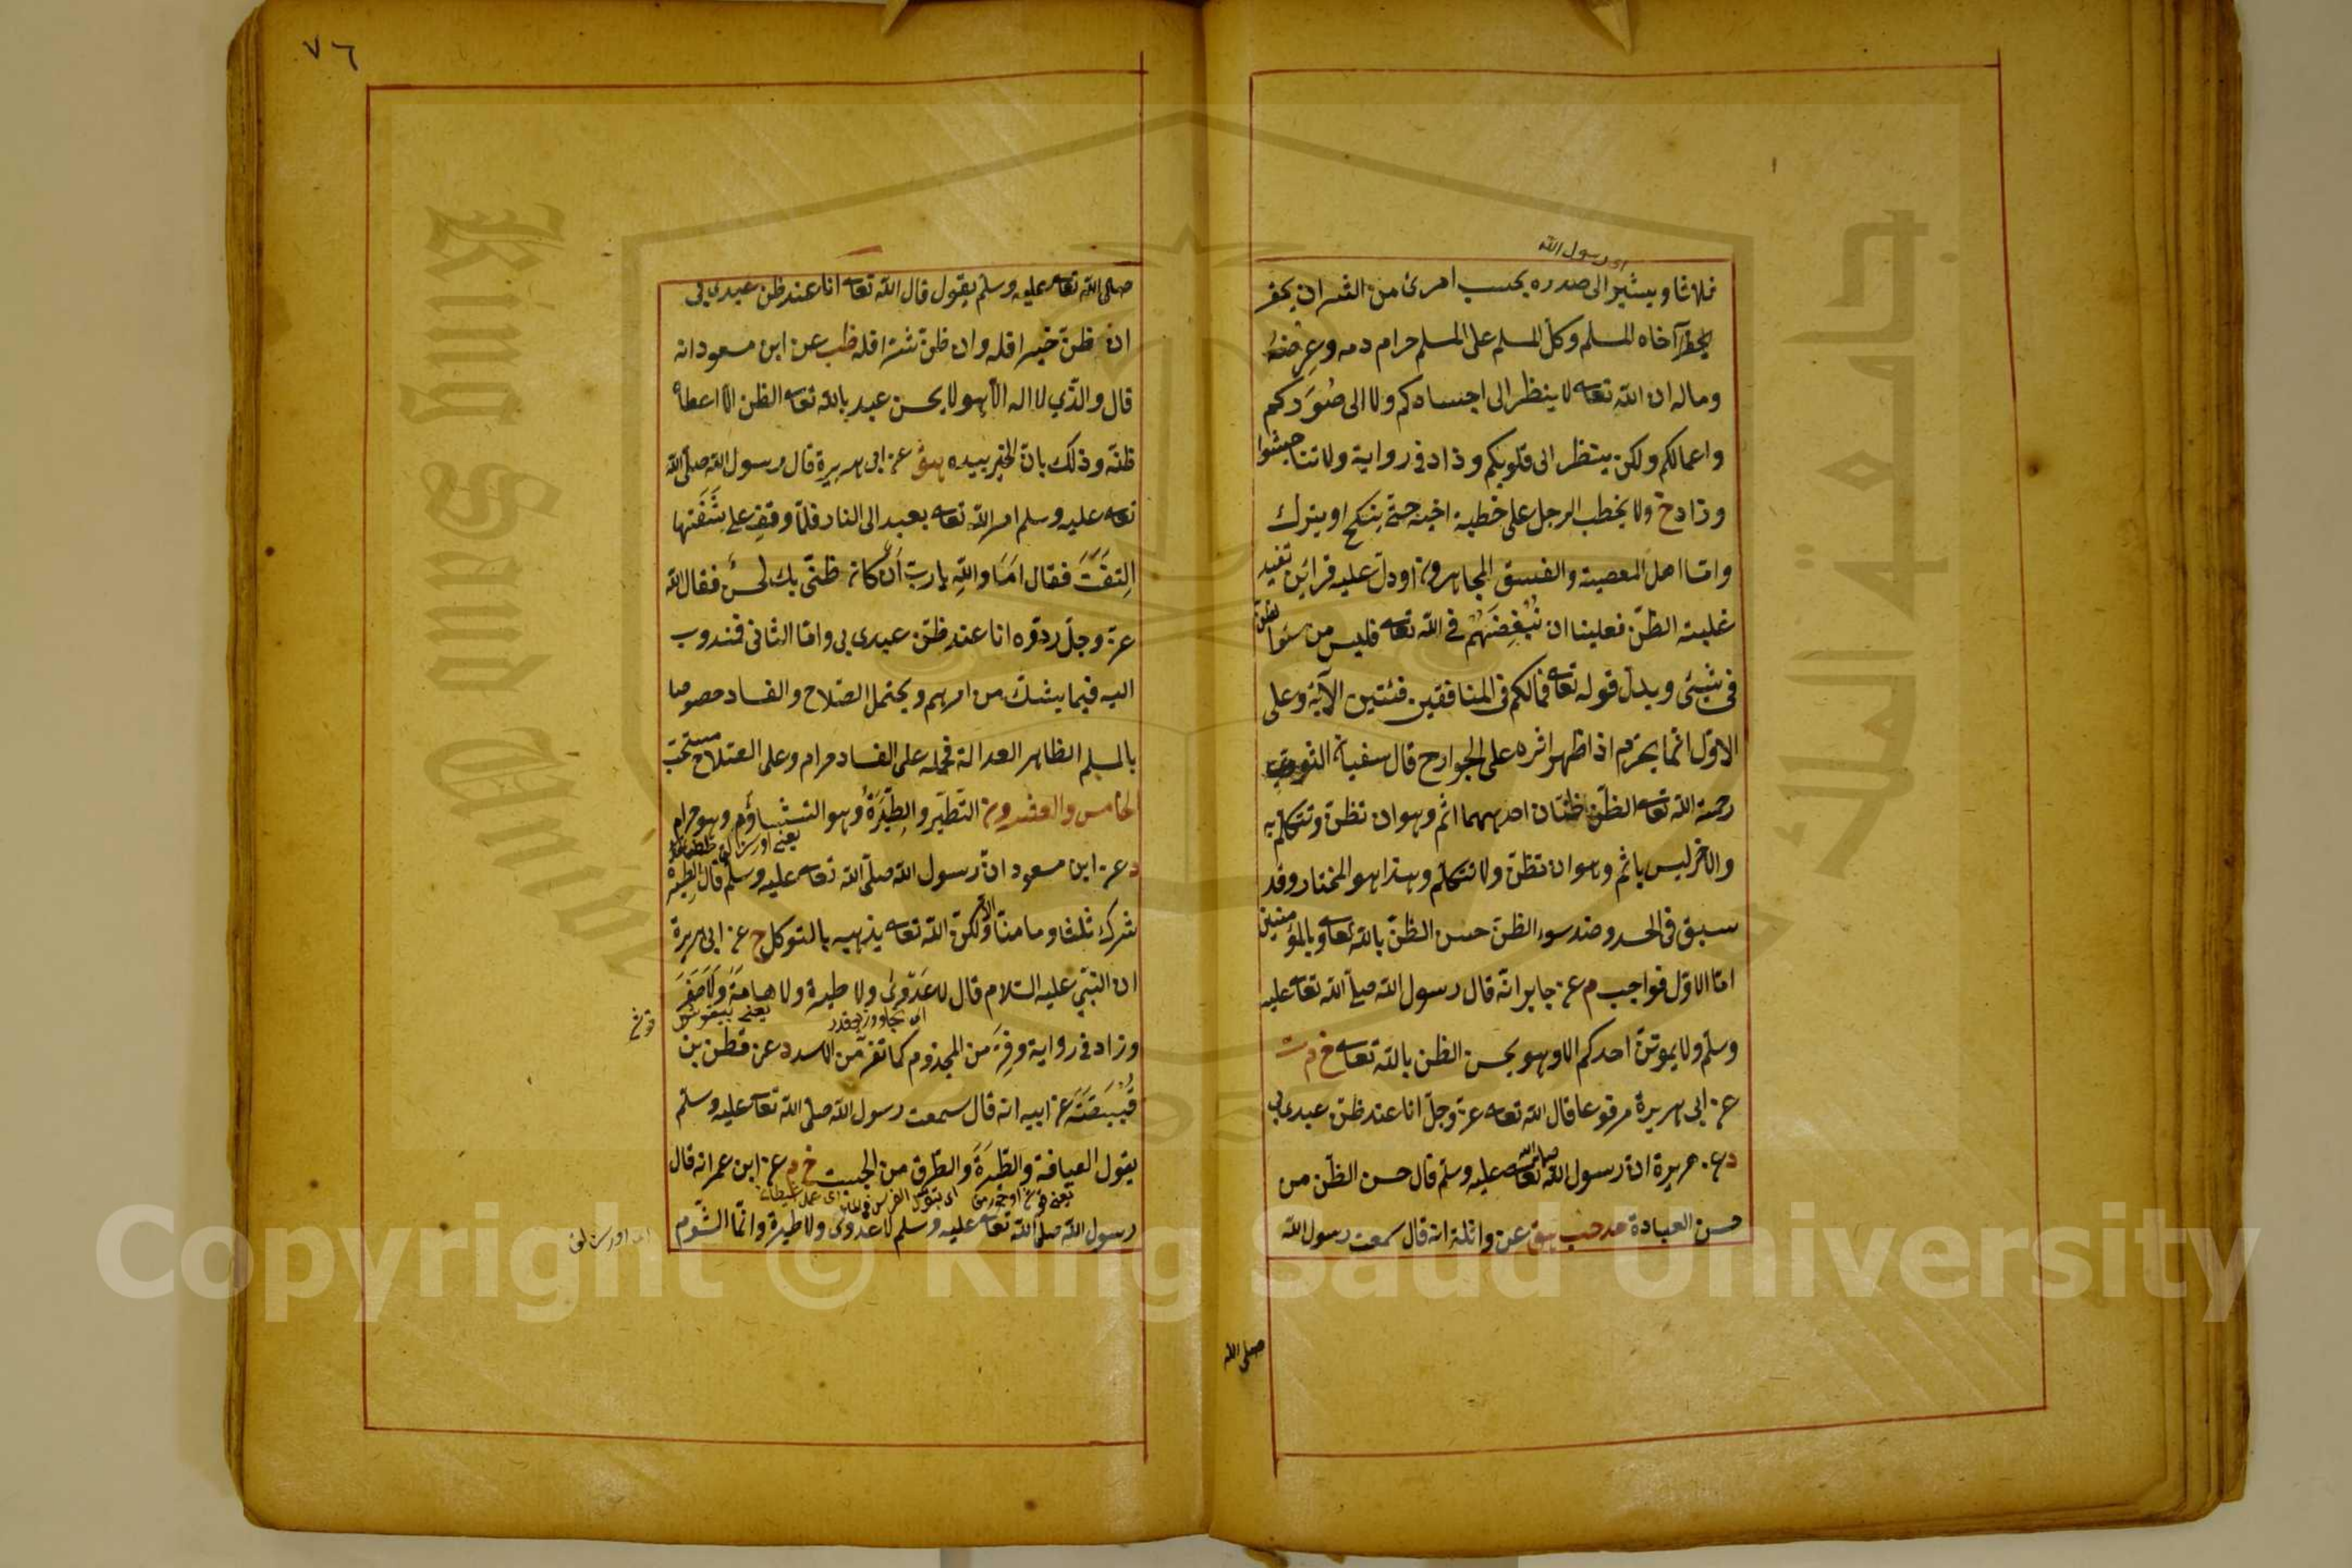 ای رسول الله
ثلاثا ويشير الى صدره بحسب امرئ من الشر ان يحقر
اخاه المسلم وكل المسلم على المسلم حرام دمه وعرضه
وماله ان الله تعا لا ينظر الى اجسادكم ولا الى صوركم
واعمالكم ولكن ينظر الى قلوبكم وزاد فى رواية ولا تناجشوا
وزاد خ ولا يخطب الرجل على خطبة اخيه حتى ينكح او يترك
واما اهل المعصية والفسق المجاهرون او دل عليه قرائن تفيد
غلبة الظن فعلينا ان نبغضهم فى الله تعا فليس من سوء الظن
فى شيئ ويدل قوله تعا فمالكم فى المنافقين فئتين الآية وعلى
الاول انما يحرم اذا ظهر اثره على الجوارح قال سفيان الثورى
رحمة الله تعا الظن ظنان احدهما اثم وهو ان تظن وتتكلم به
والآخر ليس باثم وهو ان تظن ولا تتكلم وهذا هو المختار وقد
سبق فى الحسد وضد سوء الظن حسن الظن بالله تعا وبالمؤمنين
اما الاول فواجب م عن جابر انه قال رسول الله صلى الله تعا عليه
وسلم ولا يموتن احدكم الا وهو يحسن الظن بالله تعا خ م ت
عن ابى هريرة مرفوعا قال الله تعا عز وجل انا عند ظن عبدى بى
د عن هريرة ان رسول الله صلى الله تعا عليه وسلم قال حسن الظن من
حسن العبادة حد حب هق عن واثلة انه قال سمعت رسول الله
صلى الله
٧٦
صلى الله تعا عليه وسلم يقول قال الله تعا انا عند ظن عبدى بى
ان ظن خيرا فله وان ظن شرا فله طب عن ابن مسعود انه
قال والذى لا اله الا هو لا يحسن عبد بالله تعا الظن الا اعطاه
ظنه وذلك بان الخير بيده هق عن ابى هريرة قال رسول الله صلى الله
تعا عليه وسلم امر الله تعا بعبد الى النار فلما وقف على شفتها
التفت فقال اما والله يا رب ان كان ظنى بك لحسن فقال الله
عز وجل ردوه انا عند ظن عبدى بى واما الثانى فمندوب
اليه فيما يشك من امرهم ويحتمل الصلاح والفساد خصوصا
بالمسلم الظاهر العدالة فحمله على الفساد حرام وعلى الصلاح مستحب
الخامس والعشرون التطير والطيرة وهو التشاؤم وهو حرام
د عن ابن مسعود ان رسول الله صلى الله تعا عليه وسلم قال الطيرة
شرك ثلثا وما منا الا ولكن الله تعا يذهبه بالتوكل خ عن ابى هريرة
ان النبى عليه السلام قال لا عدوى ولا طيرة ولا هامة ولا صفر
وزاد فى رواية وفر من المجذوم كما تفر من الاسد د عن قطن بن
قبيصة عن ابيه انه قال سمعت رسول الله صلى الله تعا عليه وسلم
يقول العيافة والطيرة والطرق من الجبت خ م عن ابن عمر انه قال
رسول الله صلى الله تعا عليه وسلم لا عدوى ولا طيرة وانما الشوم
Copyright © King Saud University
King Saud University
جامعة الملك